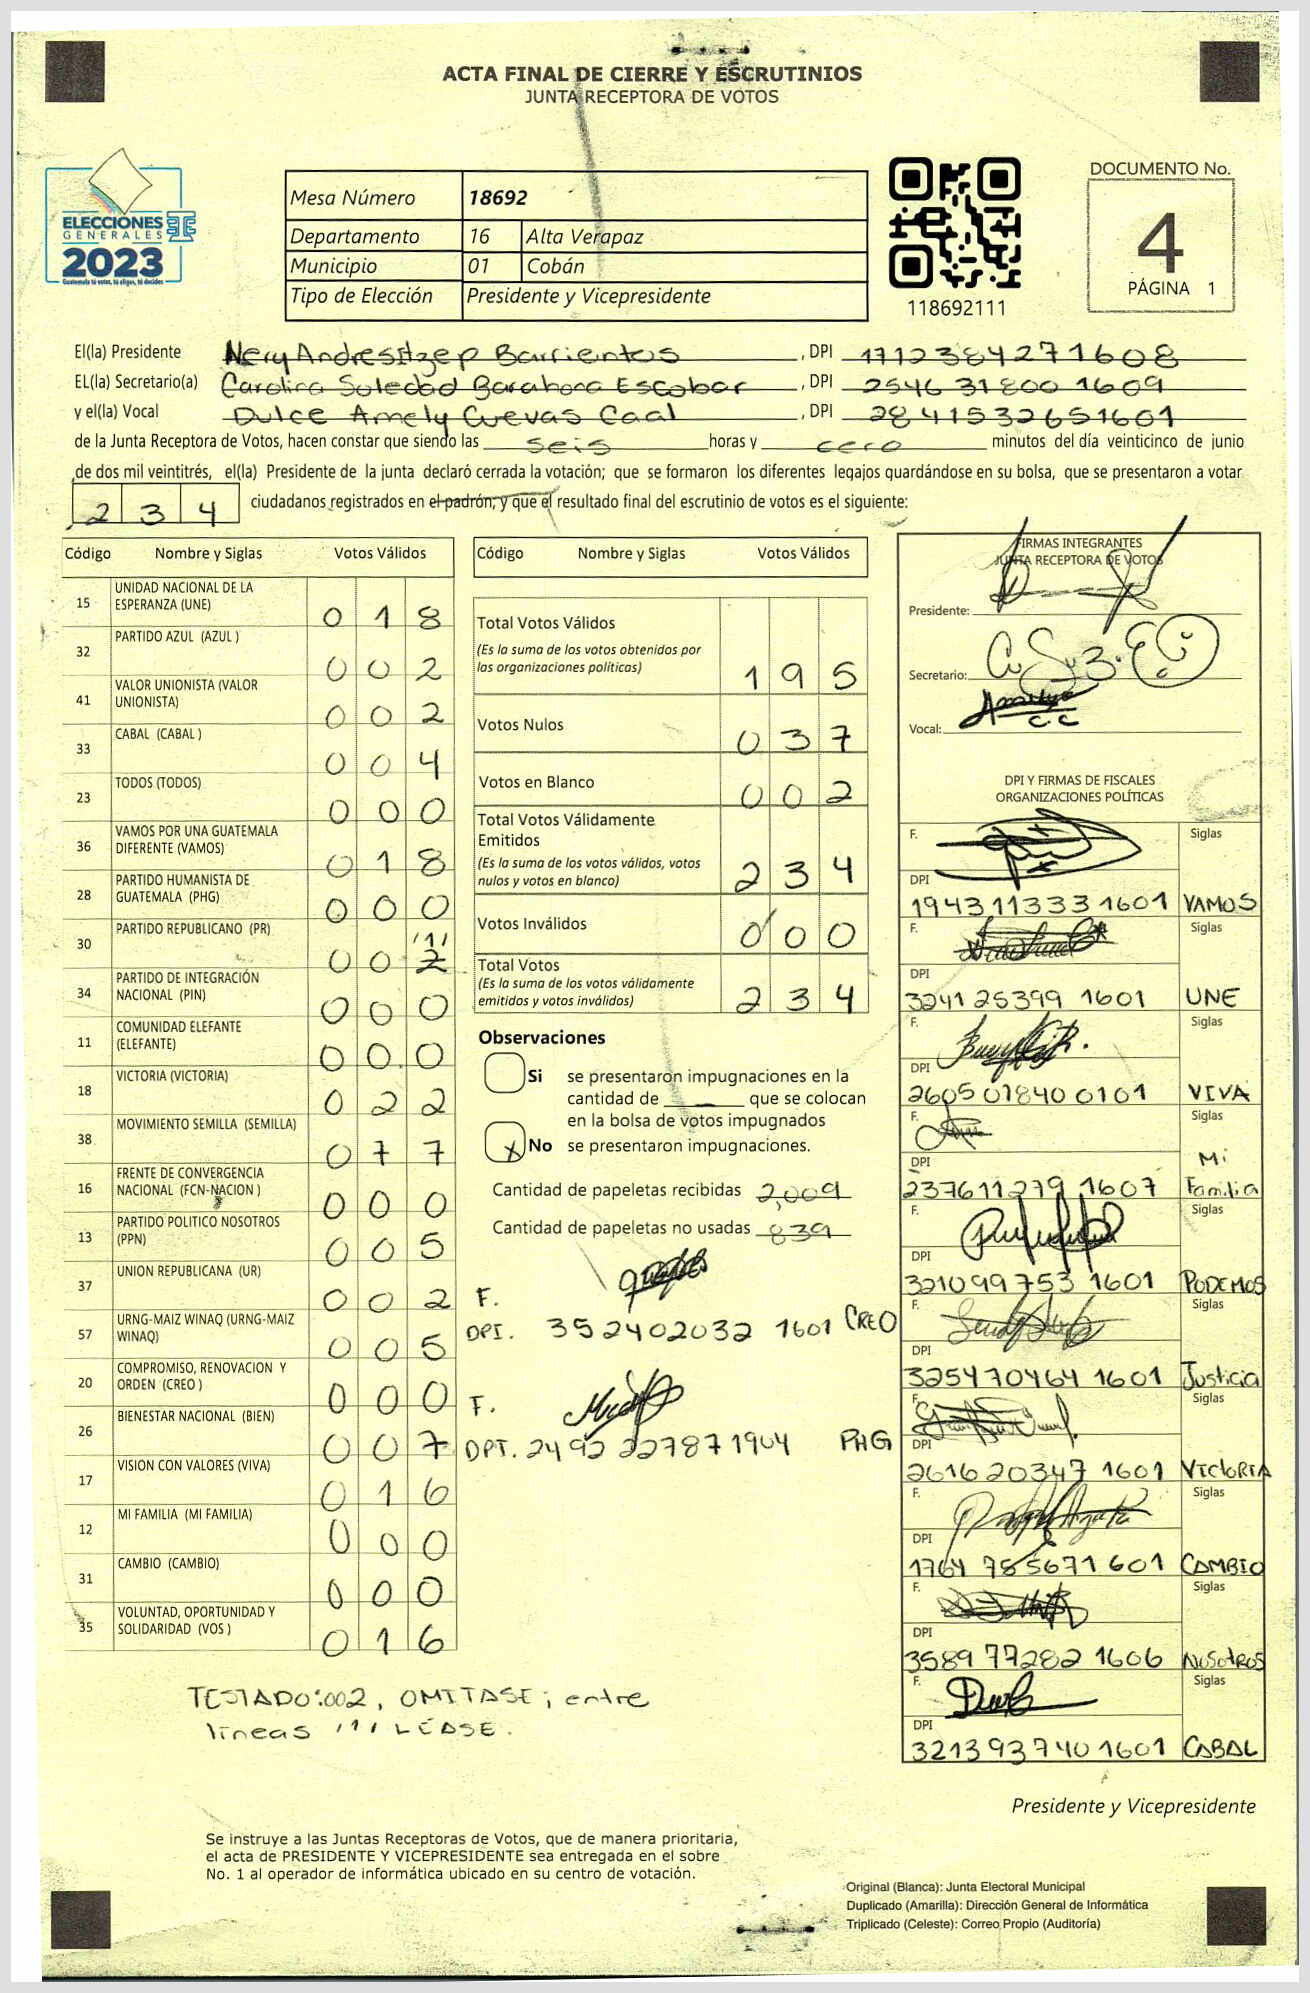 ACTA FINAL DE CIERRE Y ESCRUTINIOS
JUNTA RECEPTORA DE VOTOS
ELECCIONES
GENERALES
2023
Guatemala tú votas, tú eliges, tú decides
Mesa Número 18692
Departamento 16 Alta Verapaz
Municipio 01 Cobán
Tipo de Elección Presidente y Vicepresidente
118692111
DOCUMENTO No.
4
PÁGINA 1
El(la) Presidente Nery Andres Itzep Barrientos , DPI 1712384271608
EL(la) Secretario(a) Carolina Soledad Barahona Escobar , DPI 2546 31800 1609
y el(la) Vocal Dulce Amely Cuevas Caal , DPI 2841532651601
de la Junta Receptora de Votos, hacen constar que siendo las seis horas y cero minutos del día veinticinco de junio
de dos mil veintitrés, el(la) Presidente de la junta declaró cerrada la votación; que se formaron los diferentes legajos guardándose en su bolsa, que se presentaron a votar
2 3 4 ciudadanos registrados en el padrón; y que el resultado final del escrutinio de votos es el siguiente:
Código Nombre y Siglas Votos Válidos
15 UNIDAD NACIONAL DE LA ESPERANZA (UNE) 0 1 8
32 PARTIDO AZUL (AZUL ) 0 0 2
41 VALOR UNIONISTA (VALOR UNIONISTA) 0 0 2
33 CABAL (CABAL ) 0 0 4
23 TODOS (TODOS) 0 0 0
36 VAMOS POR UNA GUATEMALA DIFERENTE (VAMOS) 0 1 8
28 PARTIDO HUMANISTA DE GUATEMALA (PHG) 0 0 0
30 PARTIDO REPUBLICANO (PR) 0 0 2 '1'
34 PARTIDO DE INTEGRACIÓN NACIONAL (PIN) 0 0 0
11 COMUNIDAD ELEFANTE (ELEFANTE) 0 0 0
18 VICTORIA (VICTORIA) 0 2 2
38 MOVIMIENTO SEMILLA (SEMILLA) 0 7 7
16 FRENTE DE CONVERGENCIA NACIONAL (FCN-NACION ) 0 0 0
13 PARTIDO POLITICO NOSOTROS (PPN) 0 0 5
37 UNION REPUBLICANA (UR) 0 0 2
57 URNG-MAIZ WINAQ (URNG-MAIZ WINAQ) 0 0 5
20 COMPROMISO, RENOVACION Y ORDEN (CREO ) 0 0 0
26 BIENESTAR NACIONAL (BIEN) 0 0 7
17 VISION CON VALORES (VIVA) 0 1 6
12 MI FAMILIA (MI FAMILIA) 0 0 0
31 CAMBIO (CAMBIO) 0 0 0
35 VOLUNTAD, OPORTUNIDAD Y SOLIDARIDAD (VOS ) 0 1 6
TESTADO:002, OMITASE; entre
lineas '1' LÉASE.
Código Nombre y Siglas Votos Válidos
Total Votos Válidos
(Es la suma de los votos obtenidos por
las organizaciones políticas) 1 9 5
Votos Nulos 0 3 7
Votos en Blanco 0 0 2
Total Votos Válidamente
Emitidos
(Es la suma de los votos válidos, votos
nulos y votos en blanco) 2 3 4
Votos Inválidos 0 0 0
Total Votos
(Es la suma de los votos válidamente
emitidos y votos inválidos) 2 3 4
Observaciones
Si se presentaron impugnaciones en la
cantidad de — que se colocan
en la bolsa de votos impugnados
x No se presentaron impugnaciones.
Cantidad de papeletas recibidas 2,009
Cantidad de papeletas no usadas 839
F.
DPI. 352402032 1601 CREO
F.
DPI. 2492 22787 1904 PHG
FIRMAS INTEGRANTES
JUNTA RECEPTORA DE VOTOS
Presidente:
Secretario:
Vocal:
DPI Y FIRMAS DE FISCALES
ORGANIZACIONES POLÍTICAS
F. Siglas
DPI
1943113331601 VAMOS
F. Siglas
DPI
3241 25399 1601 UNE
F. Siglas
DPI
2605 01840 0101 VIVA
F. Siglas
DPI
237611279 1607 Mi Familia
F. Siglas
DPI
321099753 1601 PODEMOS
F. Siglas
DPI
325470464 1601 Justicia
F. Siglas
DPI
2616 20347 1601 VICTORIA
F. Siglas
DPI
1764 785671 601 CAMBIO
F. Siglas
DPI
3589 77282 1606 NOSOTROS
F. Siglas
DPI
3213937401601 CABAL
Presidente y Vicepresidente
Se instruye a las Juntas Receptoras de Votos, que de manera prioritaria,
el acta de PRESIDENTE Y VICEPRESIDENTE sea entregada en el sobre
No. 1 al operador de informática ubicado en su centro de votación.
Original (Blanca): Junta Electoral Municipal
Duplicado (Amarilla): Dirección General de Informática
Triplicado (Celeste): Correo Propio (Auditoría)